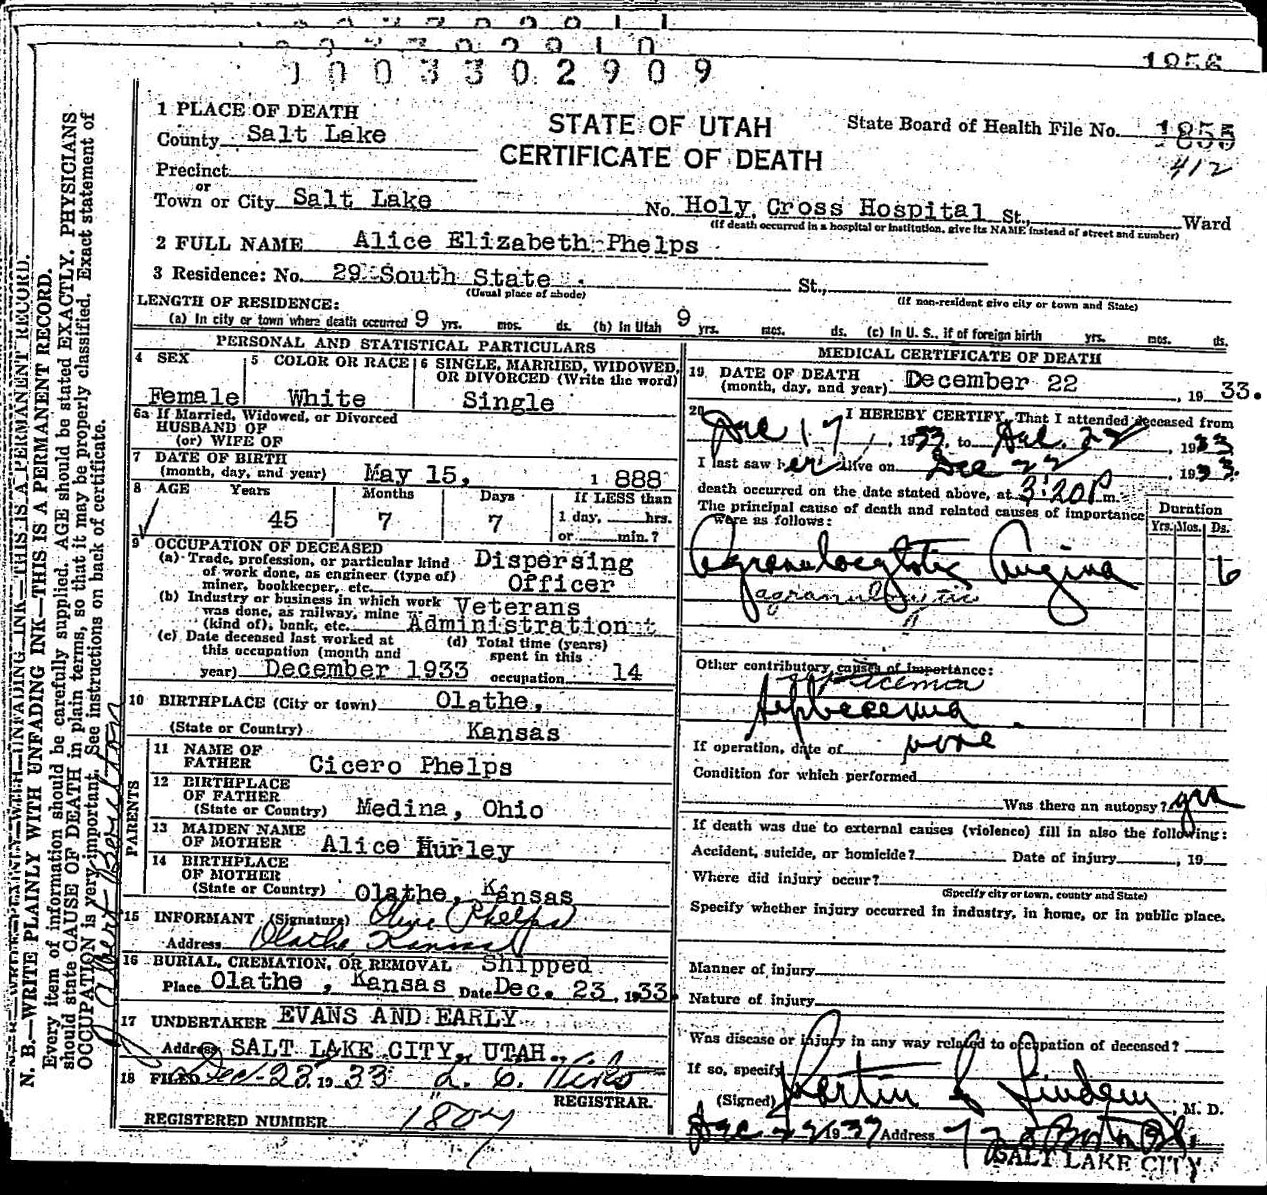 0003302909
1856
1 PLACE OF DEATH
County Salt Lake
STATE OF UTAH
CERTIFICATE OF DEATH
State Board of Health File No. 1855
412
Precinct
or
Town or City Salt Lake No. Holy Cross Hospital St., Ward
(If death occurred in a hospital or institution, give its NAME instead of street and number)
2 FULL NAME Alice Elizabeth Phelps
3 Residence: No. 29 South State St.,
(Usual place of abode) (If non-resident give city or town and State)
LENGTH OF RESIDENCE:
(a) In city or town where death occurred 9 yrs. mos. ds. (b) In Utah 9 yrs. mos. ds. (c) In U. S., if of foreign birth yrs. mos. ds.
PERSONAL AND STATISTICAL PARTICULARS
4 SEX 5 COLOR OR RACE 6 SINGLE, MARRIED, WIDOWED, OR DIVORCED (Write the word)
Female White Single
6a If Married, Widowed, or Divorced
HUSBAND OF
(or) WIFE OF
7 DATE OF BIRTH
(month, day, and year) May 15, 1888
8 AGE Years Months Days If LESS than
45 7 7 1 day, hrs.
or min.?
9 OCCUPATION OF DECEASED
(a) Trade, profession, or particular kind of work done, as engineer (type of) miner, bookkeeper, etc. Dispersing Officer
(b) Industry or business in which work was done, as railway, mine (kind of), bank, etc. Veterans Administration
(c) Date deceased last worked at this occupation (month and year) December 1933
(d) Total time (years) spent in this occupation 14
10 BIRTHPLACE (City or town) Olathe,
(State or Country) Kansas
PARENTS
11 NAME OF FATHER Cicero Phelps
12 BIRTHPLACE OF FATHER
(State or Country) Medina, Ohio
13 MAIDEN NAME OF MOTHER Alice Hurley
14 BIRTHPLACE OF MOTHER
(State or Country) Olathe, Kansas
15 INFORMANT (Signature) Olive Phelps
Address Olathe Kansas
16 BURIAL, CREMATION, OR REMOVAL Shipped
Place Olathe, Kansas Date Dec. 23, 1933.
17 UNDERTAKER EVANS AND EARLY
Address SALT LAKE CITY, UTAH.
18 FILED Dec-23, 1933 REGISTRAR.
REGISTERED NUMBER 1807
MEDICAL CERTIFICATE OF DEATH
19 DATE OF DEATH
(month, day, and year) December 22, 1933.
20 I HEREBY CERTIFY, That I attended deceased from
Dec 17, 1933, to Dec. 22, 1933
I last saw her alive on Dec 22, 1933.
death occurred on the date stated above, at 3:20 P m.
The principal cause of death and related causes of importance were as follows:
Duration
Yrs. Mos. Ds.
Agranulocytotic Angina 6
agranulocytic
Other contributory causes of importance:
Septicemia
none
If operation, date of
Condition for which performed
Was there an autopsy? yes
If death was due to external causes (violence) fill in also the following:
Accident, suicide, or homicide? Date of injury , 19
Where did injury occur?
(Specify city or town, county and State)
Specify whether injury occurred in industry, in home, or in public place.
Manner of injury
Nature of injury
Was disease or injury in any way related to occupation of deceased?
If so, specify
(Signed) , M. D.
Dec 22 1933 Address
SALT LAKE CITY
N. B.—WRITE PLAINLY WITH UNFADING INK—THIS IS A PERMANENT RECORD.
Every item of information should be carefully supplied. AGE should be stated EXACTLY. PHYSICIANS
should state CAUSE OF DEATH in plain terms, so that it may be properly classified. Exact statement of
OCCUPATION is very important. See instructions on back of certificate.